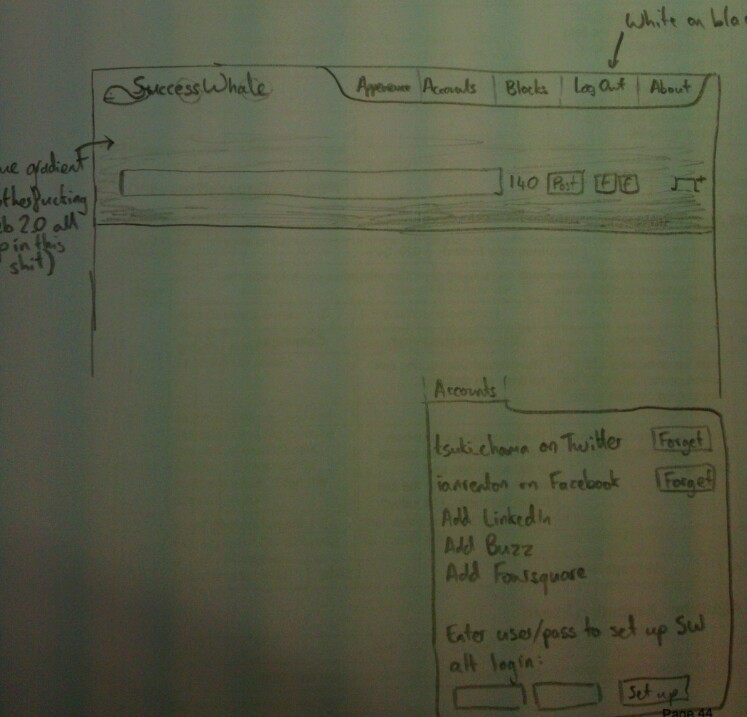 White on bla
SuccessWhale
Appearance Accounts Blocks Log Out About
ue gradient
otherfucking
eb 2.0 all
p in this
shit)
140 Post t f
Accounts
tsukichama on Twitter Forget
ianrenton on Facebook Forget
Add LinkedIn
Add Buzz
Add Foursquare
Enter user/pass to set up SW
alt login:
Set up!
Page 44